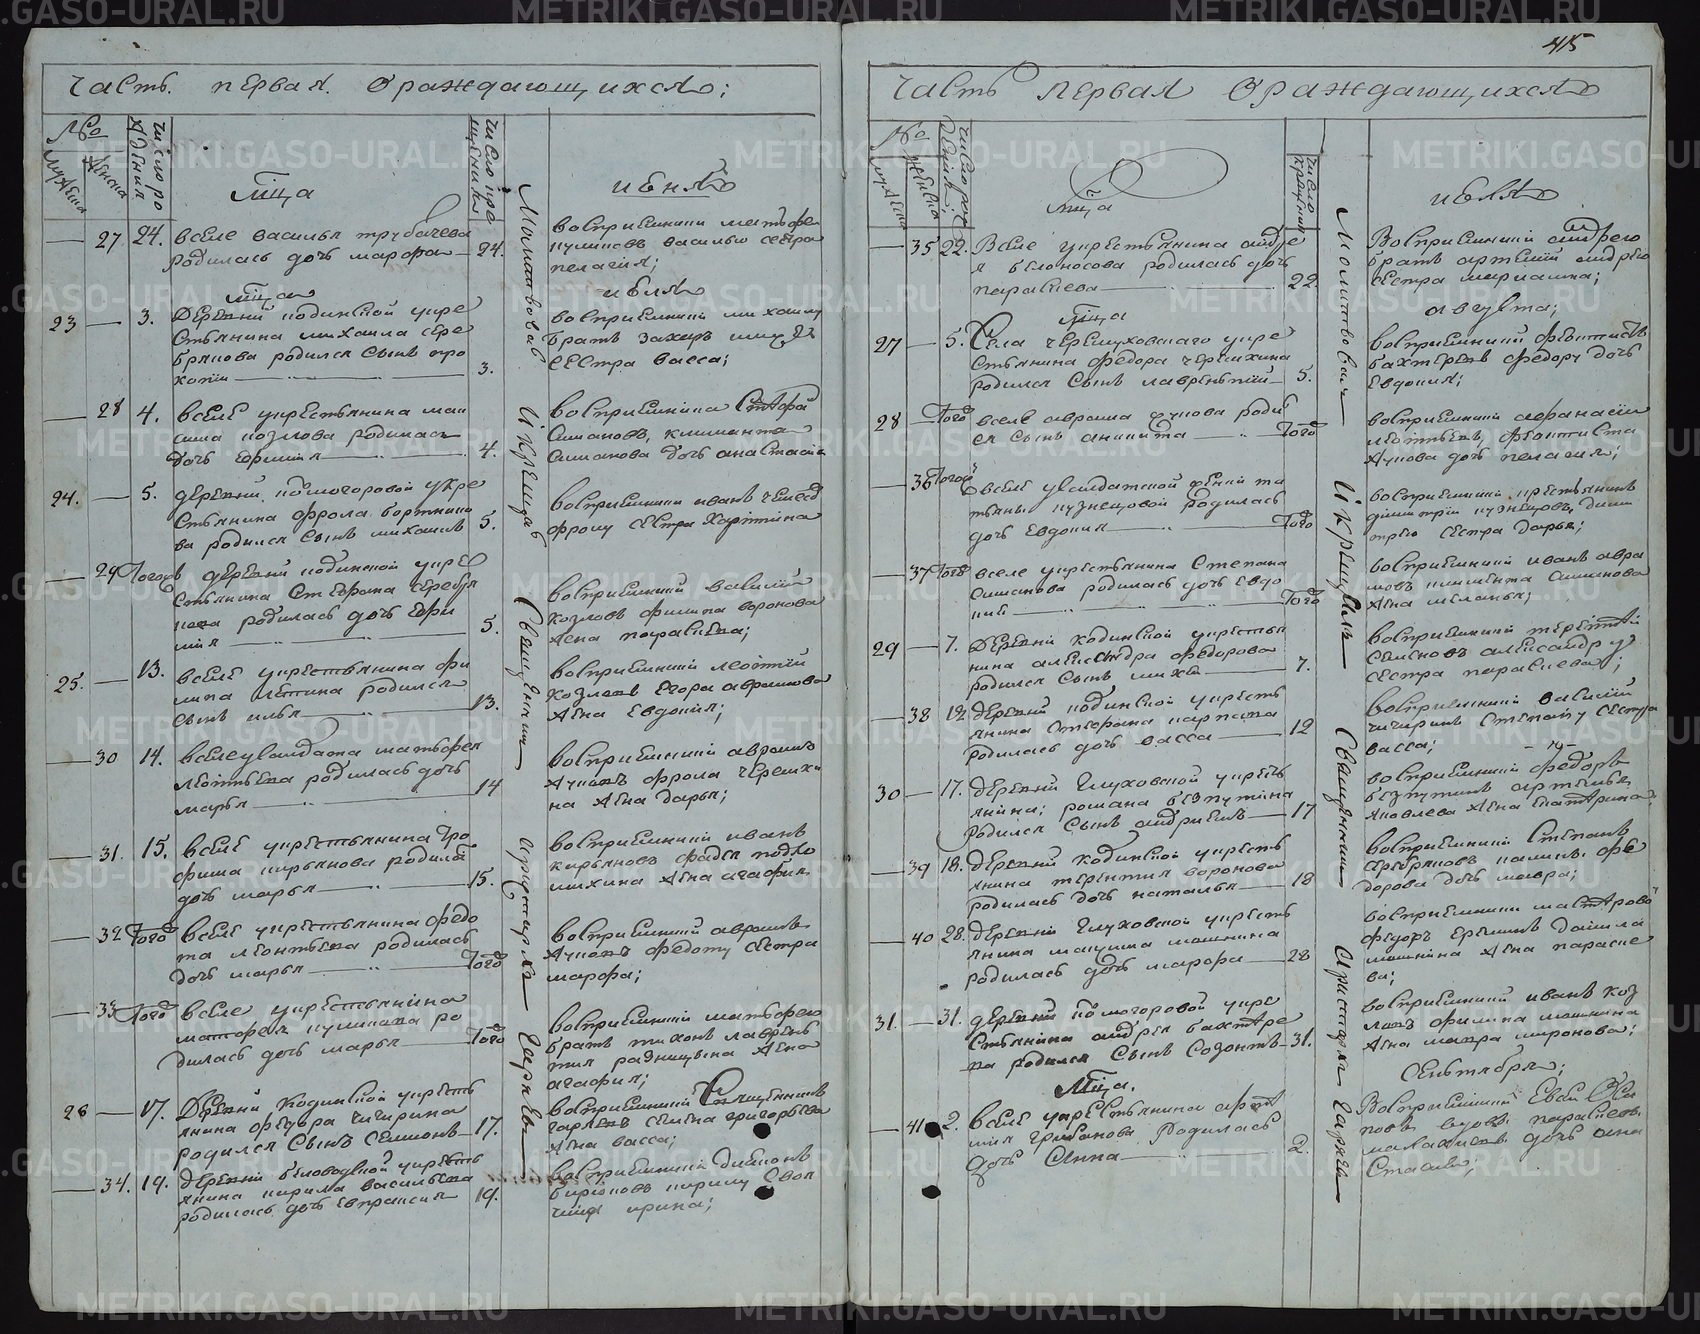 415
Часть первая о раждающихся;
№
мужеска
женска
число ро
ждения
число кре
щения
Мца
июля
27 24. в селе василья трубачева
родилась дочь марфа 24.
восприемники матфей
пушкинъ василью сестра
пелагия;
Мца
июля
23 3. Деревни кодинской у кре
стьянина михаила сере
брякова родился сынъ про
копий 3.
восприемники михаилу
братъ захаръ
сестра васса;
28 4. в селе у крестьянина мак
сима козлова родилась
дочь ефимия 4.
восприемники
Симановъ, климента
Симанова дочь анастасия
24. 5. деревни помогоровой у кре
стьянина фрола бортнико
ва родился сынъ михаилъ 5.
восприемники иванъ
фролу сестра харитина
29 Тогожъ деревни кодинской у кре
стьянина Стефана серебря
кова родилась дочь ефи
мия 5.
восприемники василий
козловъ филипа воронова
жена параскева;
25. 13. в селе у крестьянина фи
липа летина родился
сынъ илья 13.
восприемники леонтий
козловъ егора аврамова
жена евдокия;
30 14. в селе у солдата матфея
леонтьева родилась дочь
марья 14
восприемники аврамъ
Ачуновъ фрола черемхи
на жена дарья;
31. 15. в селе у крестьянина тро
фима кирьянова родила
дочь марья 15.
восприемники иванъ
кирьяновъ фадея подко
михина жена агафия
32 Того в селе у крестьянина федо
та леонтьева родилась
дочь марья Того
восприемники аврамъ
Ачуновъ федоту сестра
марфа;
33 Того в селе у крестьянина
матфея пушкина ро
дилась дочь марья Того
восприемники матфею
братъ тихонъ лаврень
тия жена
агафия;
26 17. Деревни кодинской у кресть
янина федора чичирина
родился сынъ симионъ 17.
восприемники священникъ
семена григорьева
жена васса;
34. 19. Деревни беловодной у кресть
янина кирила васильева
родилась дочь евпраксия 19.
восприемники дионъ
бирюковъ кирилу
ирина;
Молитвовалъ и крещалъ священникъ аристархъ
Часть первая о раждающихся
№
мужеска
женска
число рож
дения;
число
крещения
Мца
июля
35 22. В селе у крестьянина андре
я белоносова родилась дочь
параскева 22.
Восприемники андрею
братъ артемий андрею
сестра мариамна;
Мца
августа;
27 5. Села черемуховскаго у кре
стьянина федора черемхина
родился сынъ лаврентий 5.
восприемники феоктистъ
бахтеревъ федору дочь
евдокия;
28 Того в селе аврама ачунова роди
ся сынъ аникита Того
восприемники афанасий
леонтьевъ, феоктиста
Ачунова дочь пелагия;
36 Тогоже в селе у солдатской жены та
тьяны кузнецовой родилась
дочь евдокия Того
восприемники крестьянинъ
димитрий кузнецовъ, дими
трию сестра дарья;
37 Того в селе у крестьянина Степана
Симанова родилась дочь евдо
кия Того
восприемники иванъ авра
мовъ климента симанова
жена меланья;
29 7. Деревни кодинской у крестья
нина александра федорова
родился сынъ михей 7.
восприемники терентий
семеновъ александру
сестра параскева;
38 12. деревни кодинской у кресть
янина Стефана карпова
родилась дочь васса 12
восприемники василий
чичиринъ степану сестра
васса;
30 17. деревни Глуховской у кресть
янина; романа безпутина
родился сынъ андрианъ 17
восприемники федоръ
безпутинъ артемья
яковлева жена екатерина
39 18. деревни кодинской у кресть
янина терентия воронова
родилась дочь наталья 18
восприемники Степанъ
серебряковъ калины фе
дорова дочь мавра;
40 28. деревни Глуховской у кресть
янина максима мошкина
родилась дочь марфа 28
восприемники
федоръ ереминъ данила
мошкина жена параске
ва;
31. 31. деревни помогоровой у кре
стьянина андрея бахтере
ва родился сынъ созонтъ 31.
восприемники иванъ коз
ловъ филипа мошкина
жена мавра миронова;
Мца.
Сентября;
41 2. в селе у крестьянина
грибанова родилась
дочь Анна 2.
Восприемники
параскев
дочь ана
стасия;
Молитвовалъ и крещалъ священникъ Аристархъ
METRIKI.GASO-URAL.RU